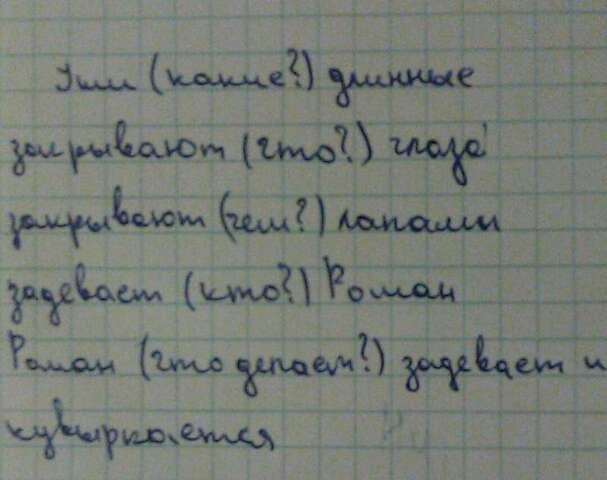 Уши (какие?) длинные
закрывают (что?) глаза
закрывают (чем?) лапами
задевает (кто?) Роман
Роман (что делает?) задевает и
кувыркается